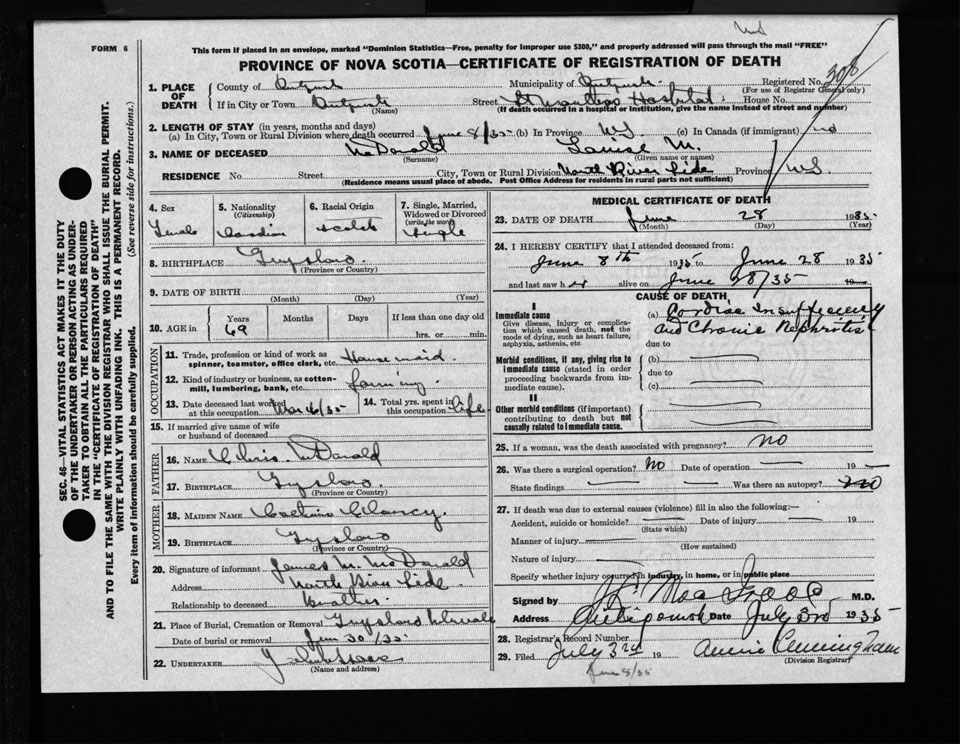 FORM 6
This form if placed in an envelope, marked "Dominion Statistics—Free, penalty for improper use $300," and properly addressed will pass through the mail "FREE"
PROVINCE OF NOVA SCOTIA—CERTIFICATE OF REGISTRATION OF DEATH
SEC. 46—VITAL STATISTICS ACT MAKES IT THE DUTY
OF THE UNDERTAKER OR PERSON ACTING AS UNDER-
TAKER TO OBTAIN ALL THE PARTICULARS REQUIRED
IN THE "CERTIFICATE OF REGISTRATION OF DEATH"
AND TO FILE THE SAME WITH THE DIVISION REGISTRAR WHO SHALL ISSUE THE BURIAL PERMIT.
WRITE PLAINLY WITH UNFADING INK. THIS IS A PERMANENT RECORD.
Every item of information should be carefully supplied. (See reverse side for instructions.)
1. PLACE OF DEATH County of Municipality of Registered No. 308
(For use of Registrar General only)
If in City or Town Street Hospital House No.
(Name) (If death occurred in a hospital or institution, give the name instead of street and number)
2. LENGTH OF STAY (in years, months and days)
(a) In City, Town or Rural Division where death occurred June 8/35 (b) In Province NS (c) In Canada (if immigrant) no
3. NAME OF DECEASED McDonald Louise M.
(Surname) (Given name or names)
RESIDENCE No. Street City, Town or Rural Division North River Side Province NS.
(Residence means usual place of abode. Post Office Address for residents in rural parts not sufficient)
4. Sex 5. Nationality 6. Racial Origin 7. Single, Married,
(Citizenship) Widowed or Divorced
(write the word)
Female Canadian Scotch Single
8. BIRTHPLACE Guysboro
(Province or Country)
9. DATE OF BIRTH
(Month) (Day) (Year)
10. AGE in Years Months Days If less than one day old
69 hrs. or min.
OCCUPATION
11. Trade, profession or kind of work as spinner, teamster, office clerk, etc. Housemaid.
12. Kind of industry or business, as cotton-mill, lumbering, bank, etc. Farming.
13. Date deceased last worked at this occupation 6/35 14. Total yrs. spent in this occupation Life
15. If married give name of wife
or husband of deceased
FATHER
16. NAME Chris. McDonald
17. BIRTHPLACE Guysboro
(Province or Country)
MOTHER
18. MAIDEN NAME Clancy.
19. BIRTHPLACE Guysboro
(Province or Country)
20. Signature of informant James M. McDonald
Address North River Side
Relationship to deceased Brother
21. Place of Burial, Cremation or Removal Guysboro
Date of burial or removal June 30/35
22. UNDERTAKER
(Name and address)
MEDICAL CERTIFICATE OF DEATH
23. DATE OF DEATH June 28 1935
(Month) (Day) (Year)
24. I HEREBY CERTIFY that I attended deceased from:
June 8th 1935 to June 28 1935
and last saw her alive on June 28/35 19
CAUSE OF DEATH
I
Immediate cause
Give disease, injury or complication which caused death, not the mode of dying, such as heart failure, asphyxia, asthenia, etc.
(a) Cardiac Insufficiency
and Chronic Nephritis
due to
Morbid conditions, if any, giving rise to immediate cause (stated in order proceeding backwards from immediate cause).
(b)
due to
(c)
II
Other morbid conditions (if important) contributing to death but not causally related to immediate cause.
25. If a woman, was the death associated with pregnancy? NO
26. Was there a surgical operation? No Date of operation 19
State findings Was there an autopsy? no
27. If death was due to external causes (violence) fill in also the following:—
Accident, suicide or homicide? Date of injury 19
(State which)
Manner of injury
(How sustained)
Nature of injury
Specify whether injury occurred in industry, in home, or in public place
Signed by M.D.
Address Antigonish Date July 3rd 1935
28. Registrar's Record Number
29. Filed July 3rd 19 Annie Cunningham
(Division Registrar)
June 8/35